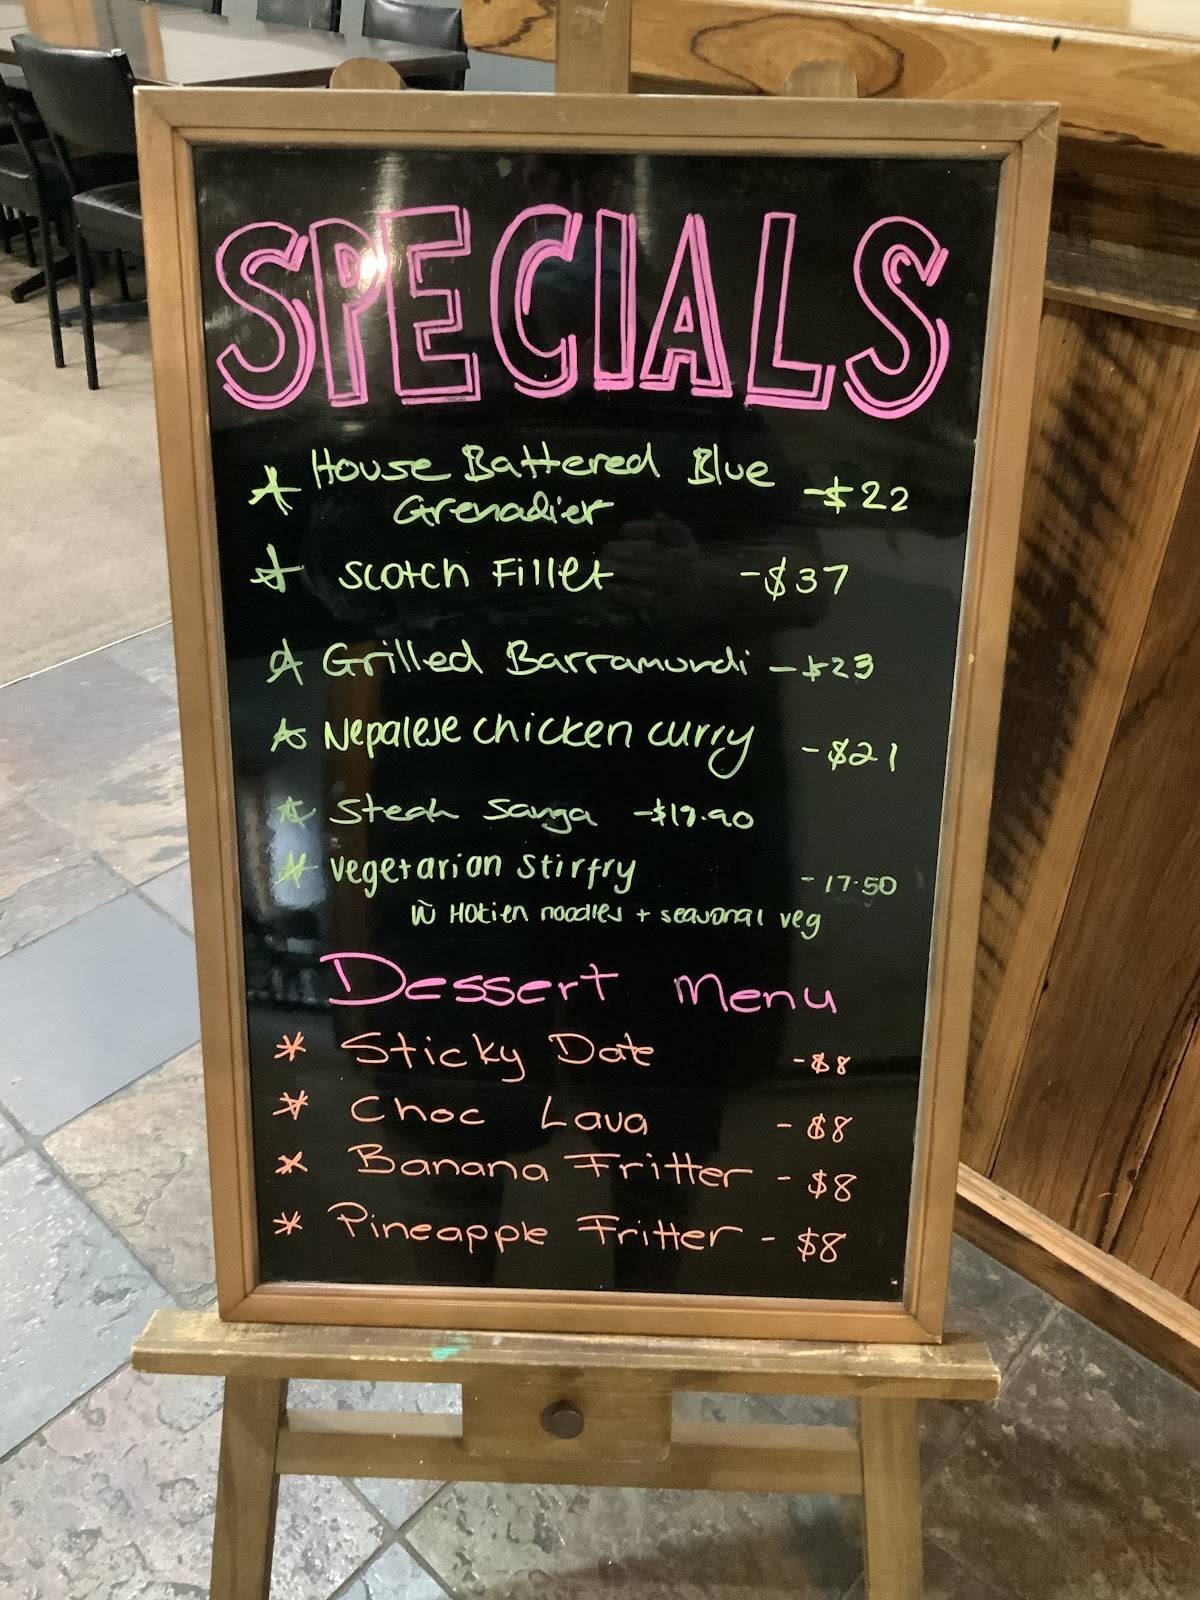 SPECIALS
House Battered Blue
Grenadier -$22
Scotch Fillet -$37
Grilled Barramundi -$23
Nepalese chicken curry -$21
Steak Sanga
Vegetarian Stirfry -17.50
W Hokien noodles + seasonal veg
Dessert Menu
* Sticky Date -$8
* Choc Lava -$8
* Banana Fritter -$8
* Pineapple Fritter -$8